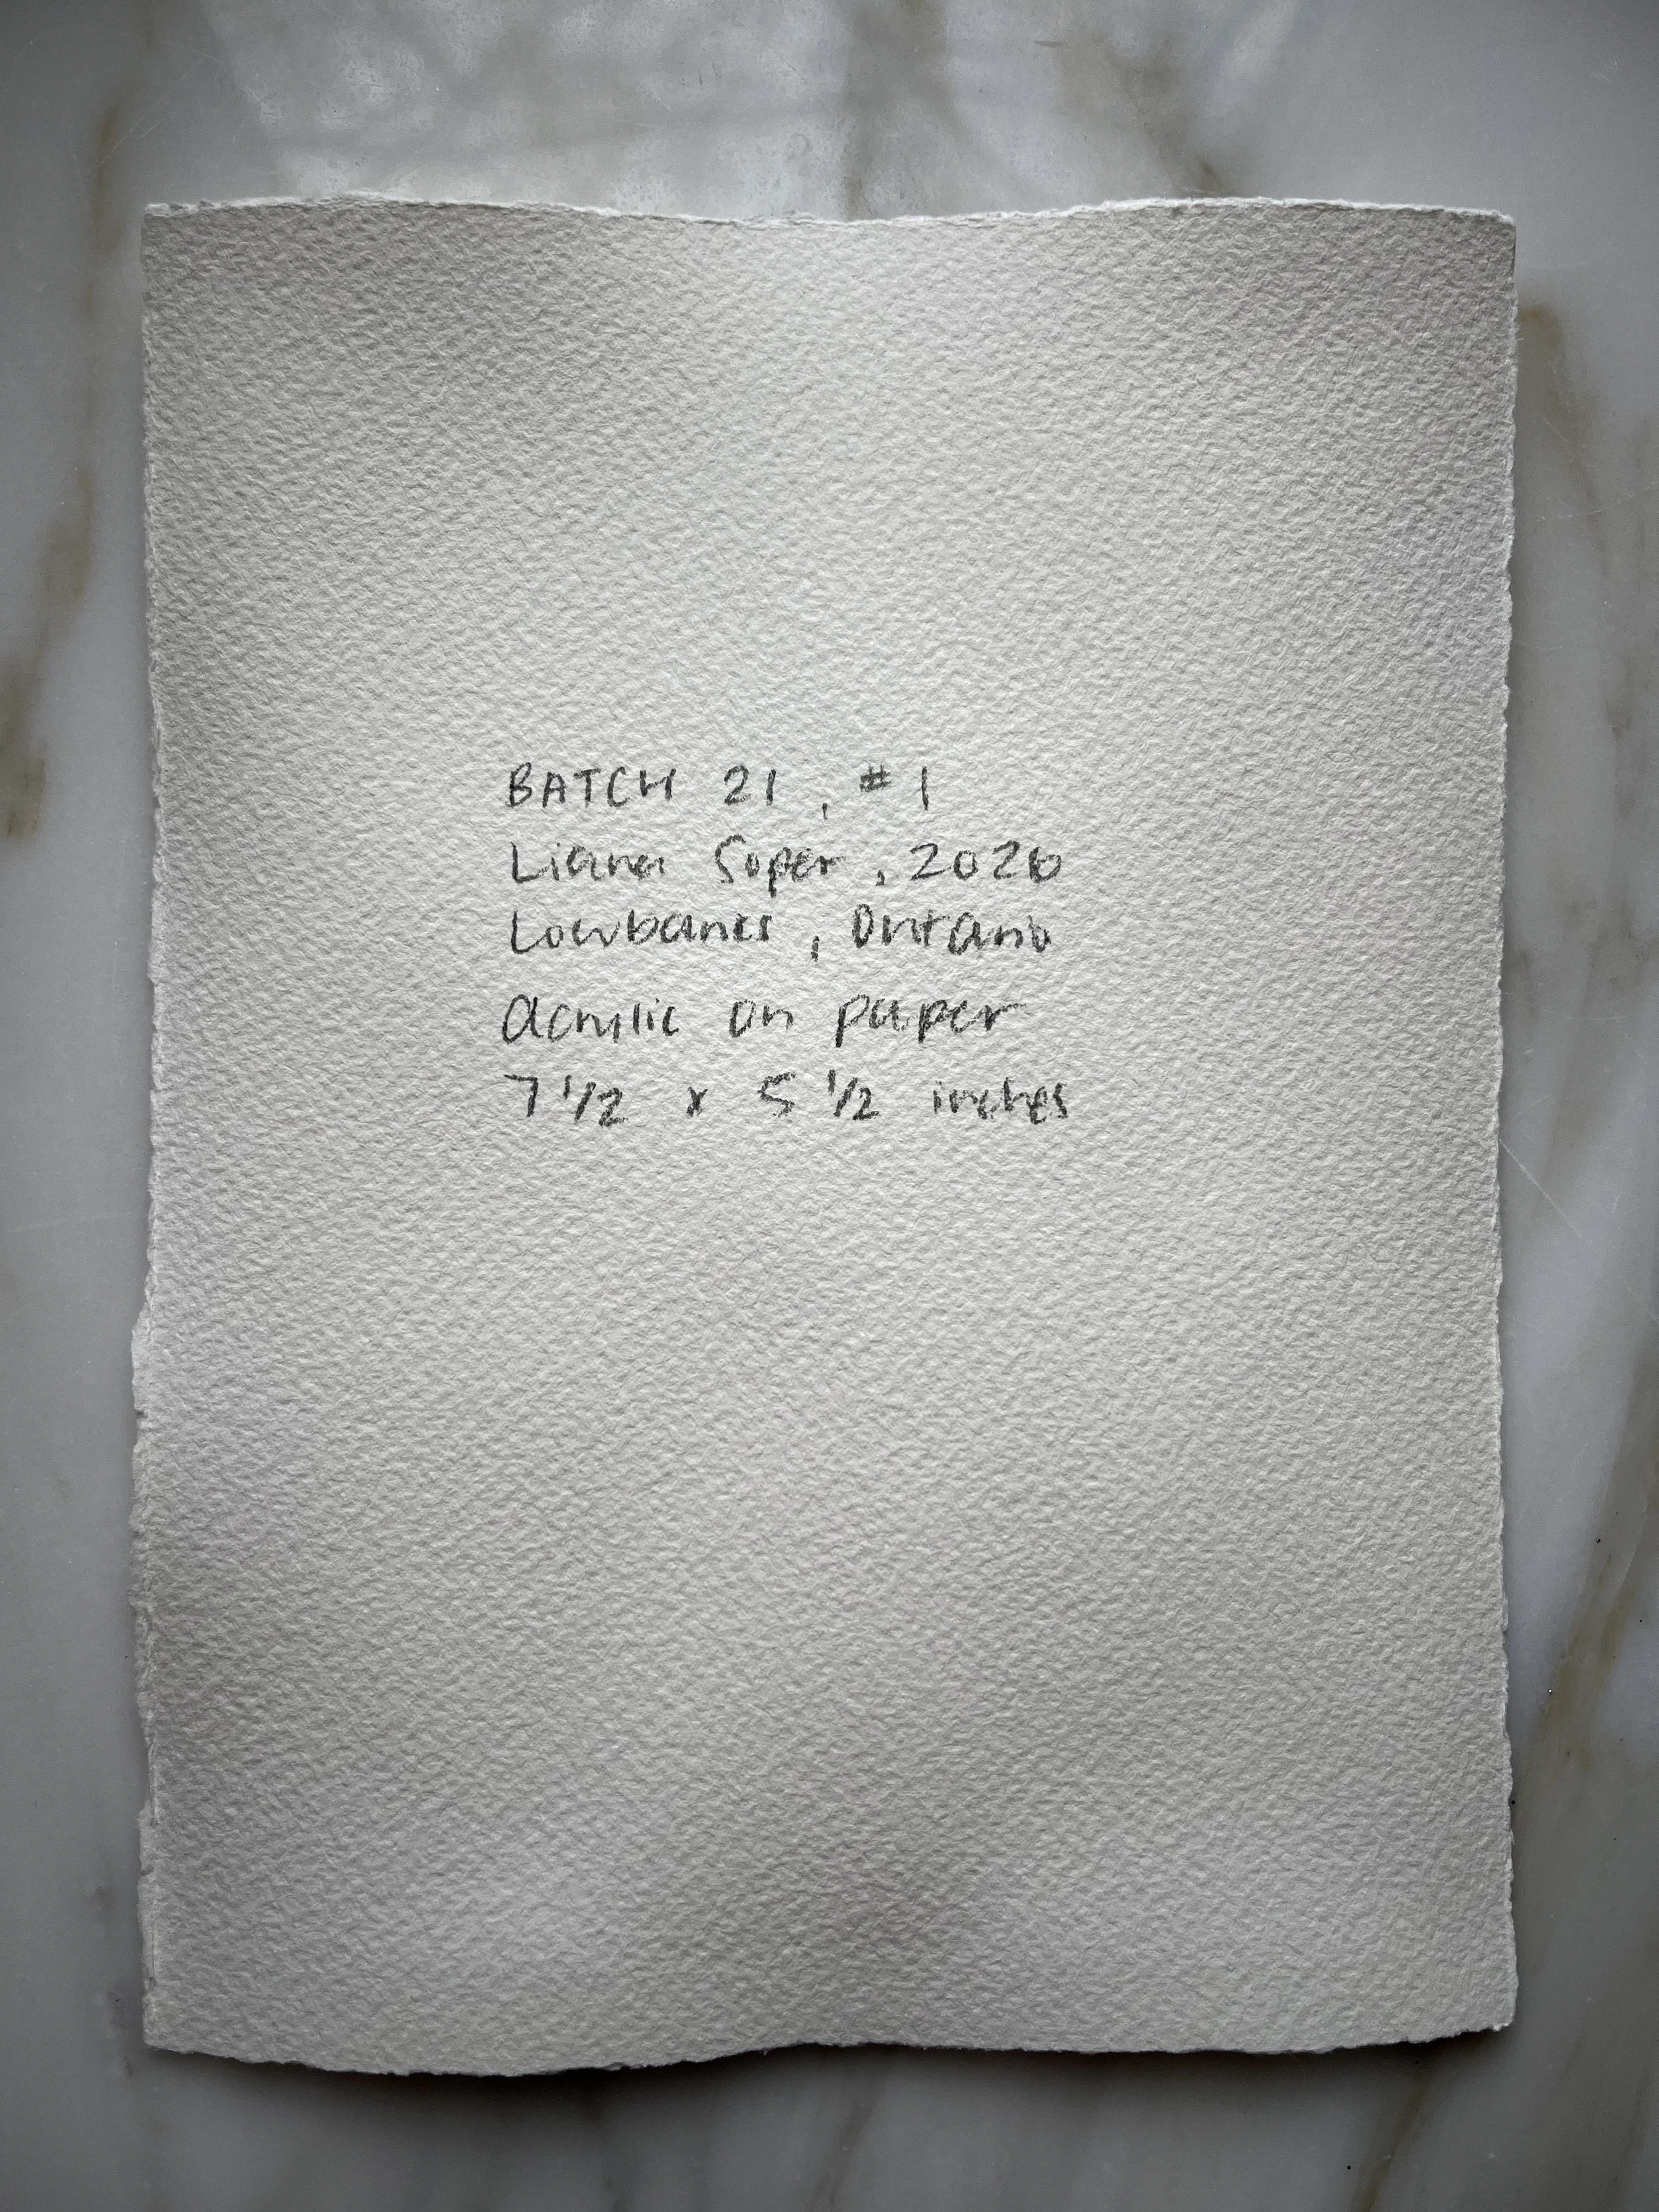 BATCH 21, #1
Liana Soper, 2026
Lowbanks, Ontario
acrylic on paper
7 1/2 x 5 1/2 inches